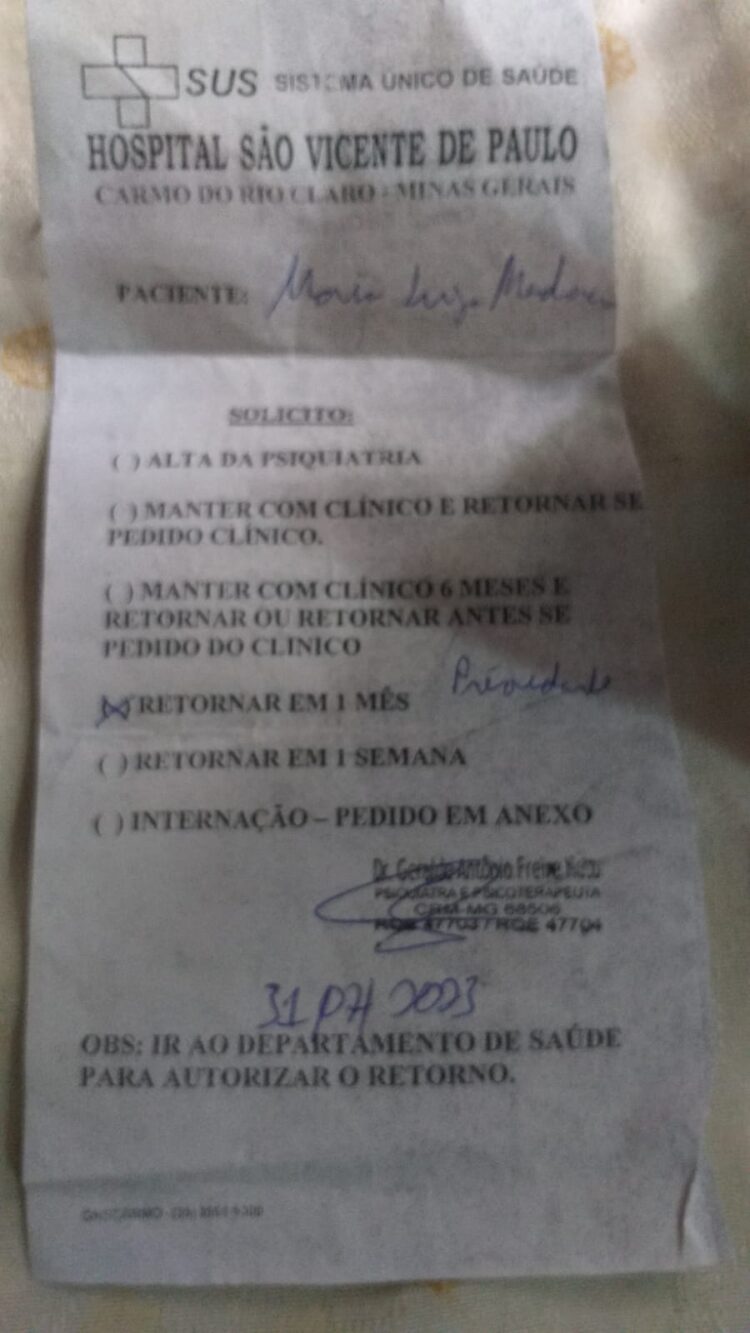 SUS SISTEMA ÚNICO DE SAÚDE
HOSPITAL SÃO VICENTE DE PAULO
CARMO DO RIO CLARO - MINAS GERAIS
PACIENTE: Maria Luiza
SOLICITO:
( ) ALTA DA PSIQUIATRIA
( ) MANTER COM CLÍNICO E RETORNAR SE
PEDIDO CLÍNICO.
( ) MANTER COM CLÍNICO 6 MESES E
RETORNAR OU RETORNAR ANTES SE
PEDIDO DO CLINICO
(X) RETORNAR EM 1 MÊS
( ) RETORNAR EM 1 SEMANA
( ) INTERNAÇÃO – PEDIDO EM ANEXO
Dr. Geraldo Antônio Freire
PSIQUIATRA E PSICOTERAPEUTA
CRM-MG 68506
RQE 47703 / RQE 47704
31 2023
OBS: IR AO DEPARTAMENTO DE SAÚDE
PARA AUTORIZAR O RETORNO.